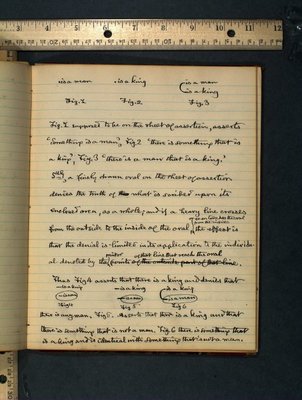 is a man   is a king   is a man
is a king
Fig. 1   Fig. 2   Fig. 3
Fig. 1 supposed to be on the sheet of assertion, asserts
"Something is a man", Fig. 2 "there is something that is
a king", Fig. 3 "there is a man that is a king."
5th, a finely drawn oval on the sheet of assertion
denies the truth of what is scribed upon its
enclosed area, as a whole; and if a heavy line crosses
from the outside to the inside of the oval, the effect is
that the denial is limited in its application to the individu-
al denoted by the point of the outside part of that line.
that line that reach the oval
Thus Fig 4 asserts that there is a king and denies that
is a king   is a king   is a king
is a man   is a man   is a man
Fig 4   Fig 5   Fig 6
there is any man, Fig 5. asserts that there is a king and that
there is something that is not a man. Fig 6 there is something that
is a king and is identical with something that is not a man.
3 4 5 6 7 8 9 10 11 12